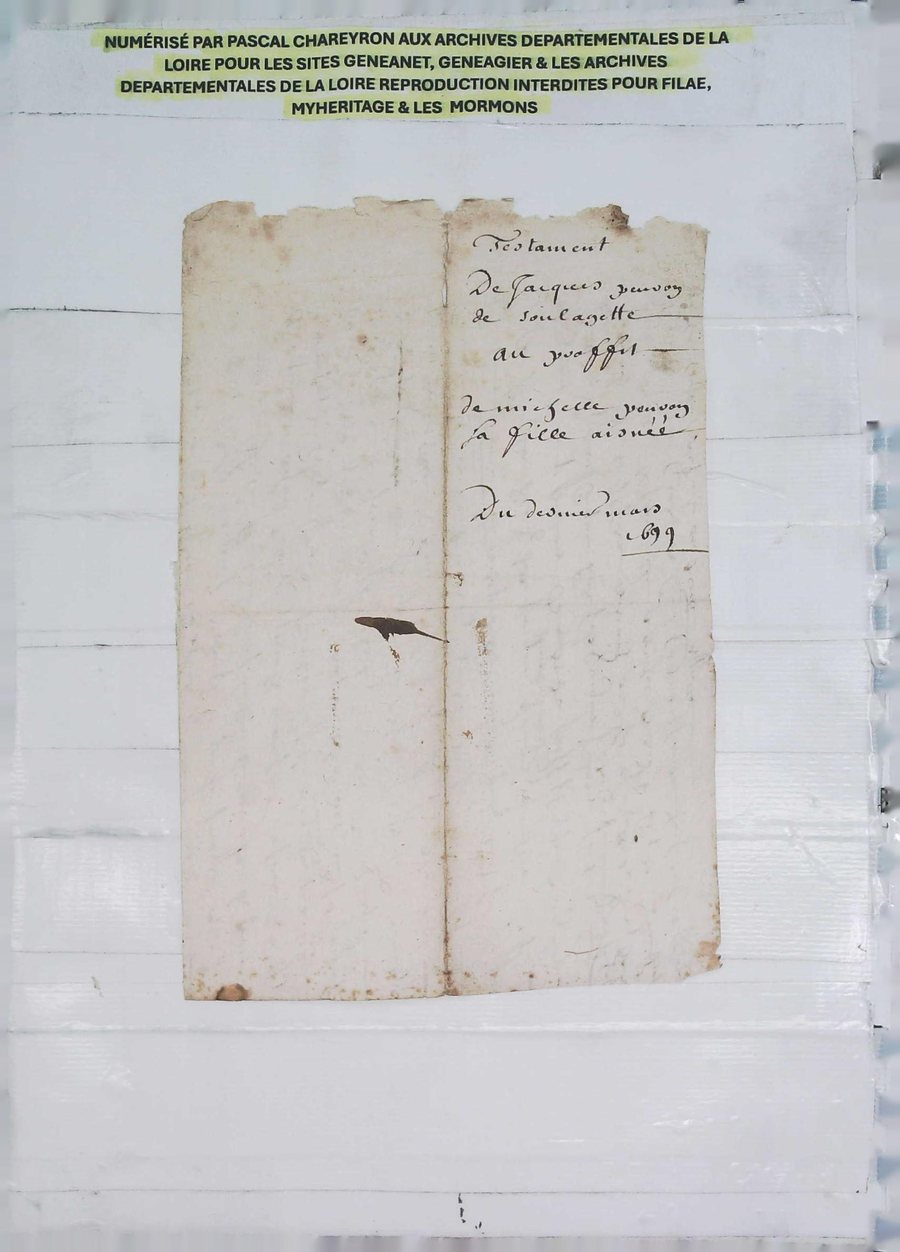 NUMÉRISÉ PAR PASCAL CHAREYRON AUX ARCHIVES DEPARTEMENTALES DE LA
LOIRE POUR LES SITES GENEANET, GENEAGIER & LES ARCHIVES
DEPARTEMENTALES DE LA LOIRE REPRODUCTION INTERDITES POUR FILAE,
MYHERITAGE & LES MORMONS
Testament
De Jacques
de soulagette
au proffit
de michelle
sa fille aisnéé
Du dernier mars
1699